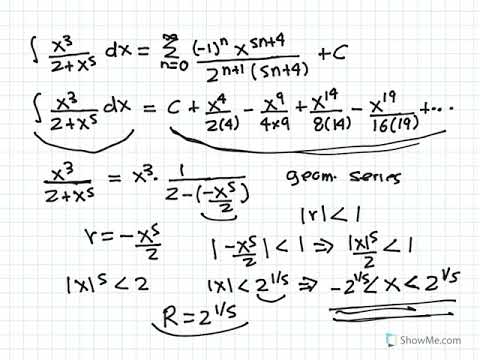 ∫ x³/(2+x⁵) dx = ∑_{n=0}^{∞} (-1)ⁿ x^{5n+4} / (2^{n+1} (5n+4)) + C
∫ x³/(2+x⁵) dx = C + x⁴/2(4) - x⁹/4×9 + x¹⁴/8(14) - x¹⁹/16(19) + ...
x³/(2+x⁵) = x³ · 1/(2-(-x⁵/2)) geom. series
|r| < 1
r = -x⁵/2 |-x⁵/2| < 1 ⇒ |x|⁵/2 < 1
|x|⁵ < 2 |x| < 2^{1/5} ⇒ -2^{1/5} < x < 2^{1/5}
R = 2^{1/5}
ShowMe.com